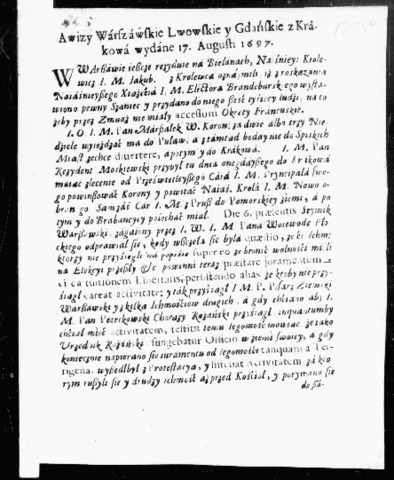 Awizy Wárszáwskie Lwowskie y Gdáńskie z Krá-
kowá wydáne 17. Augusti 1697.
W Wárszáwie ieszcze rezyduie ná Bielánách, Na śniey: Krole-
wicz I. M. Jakub. z Krolewcá oznáymili iż z roskazánia
Naiáśnieyszego Xiążęciá I. M. Elektorá Brandeburskiego wystá-
wiono pewny Szaniec y przydano do niego sześć tyśięcy ludzi, ná to
żeby przez Zmuydź nie miáły accessum Okręty Francuskie.
I. O. I. M. Pan Márszałek W. Koron: zá dwie álbo trzy Nie-
dziele wyieżdzáć ma do Puław, á ztámtąd do dáy nie do Spiskich
Miast zechce divertere, á potym y do Krákowá. I. M. Pan
Rezydent Moskiewski przybył tu dniá onegdáyszego do Krákowá
máiąc zlecenie od Prześwietleyszego Cárá I. M. Principałá swe-
go powinszowáć Korony y powitáć Naiáś. Krolá I. M. Nowo o-
bránego Sam záś Car I. M. z Prus do Pomorskiey ziemi, á po
tym y do Brábáncyey poiecháć miał. Die 6. præsentis Seymik
Wárszáwski zágáiony przez I. W. I. M. Páná Woiewodę Pło-
ckiego odpráwiał sie, kędy wszczęłá sie byłá quæstio, że ci Ichm:
ktorzy nie przyśięgli ná popiśie super eo że bronić wolności máią
ná Elekcyi przeszłey że powinni teraz præstare juramentum
ci ca tuitionem Libertatis, persistendo alias że ktoby nie przy-
śiągł careat activitate; y ták przyśiągł I. M. P. Pisarz Ziemski
Wárszáwski y z kilká Ichmościow drugich, á gdy chciano áby I.
M. Pan Piotrkowski Chorąży Rożáński przyśiągł inquantumby
chciał mieć activitatem, testitit temu Iegomość mowiąc że iáko
Urzędnik Rożáński fungebatur Officio w źiemi swoiey, á gdy
koniecznie nápierano sie iuramentu od Iegomości tanquam a Ter-
rigena, wyszedł był z Protestácyą, y sistebat Activitatem, zá kto-
rym ruszyli sie y drudzy Ichmość áż przed Kośćioł, y porywano sie
do sza-